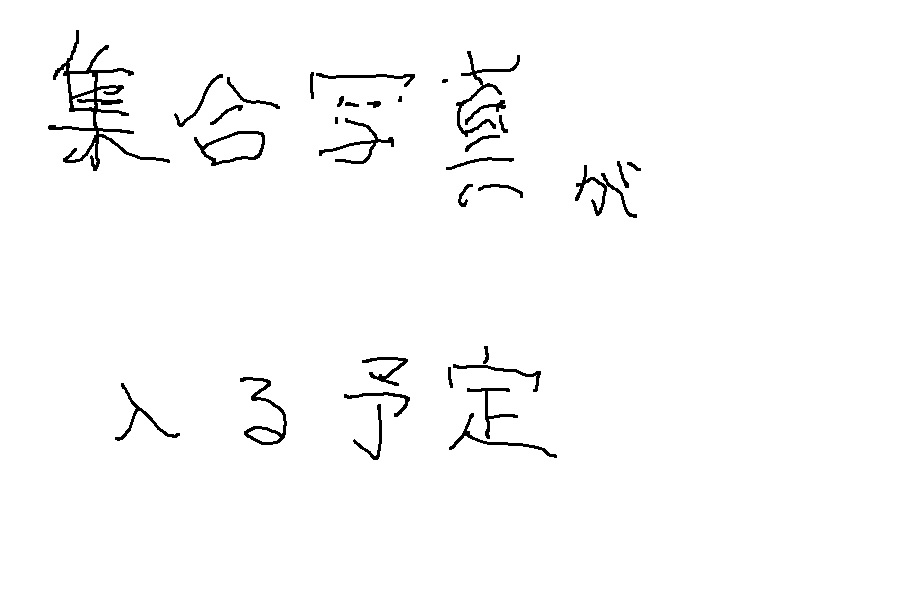 集合写真が
入る予定